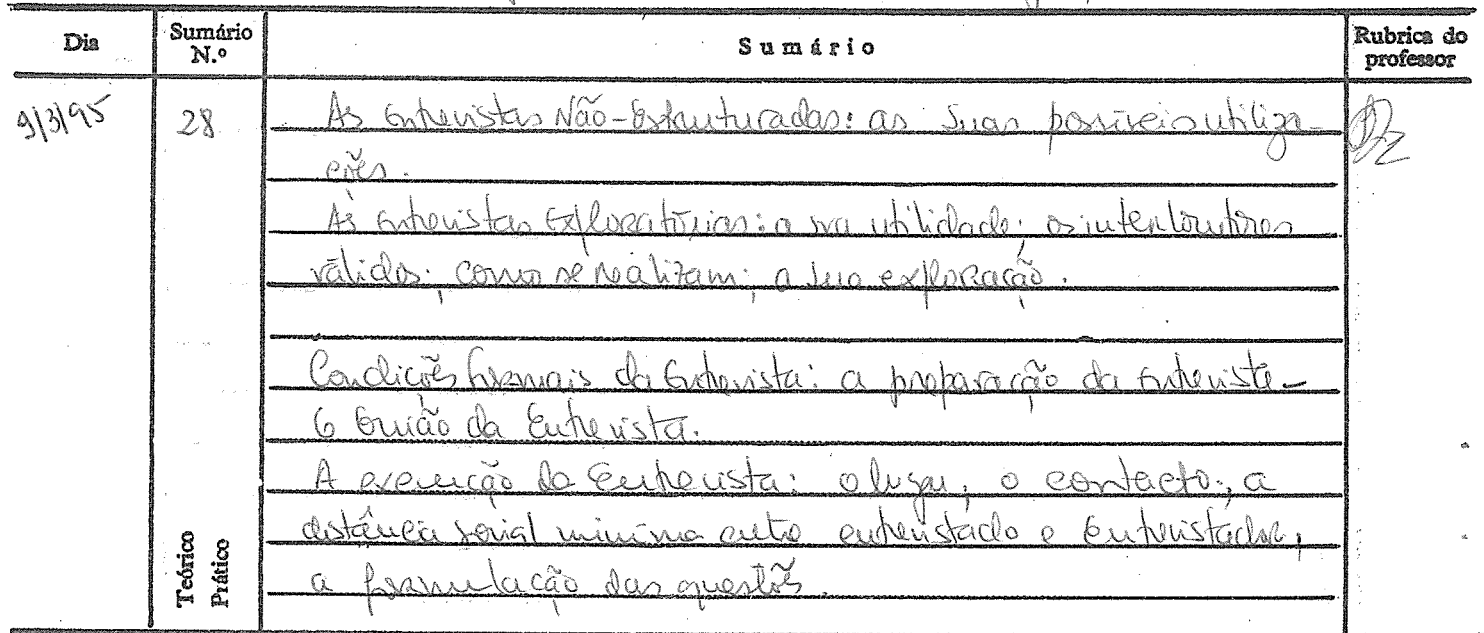 Dia
Sumário N.º
Sumário
Rubrica do professor
9/3/95
28
As Entrevistas Não-Estruturadas: as suas possíveis utiliza-
ções.
As Entrevistas Exploratórias: a sua utilidade; os interlocutores
válidos; como se realizam; a sua exploração.
Condições formais da Entrevista: a preparação da Entrevista -
O Guião da Entrevista.
A execução da Entrevista: o lugar; o contacto; a
distância social mínima entre entrevistado e Entrevistador;
a formulação das questões.
Teórico
Prático